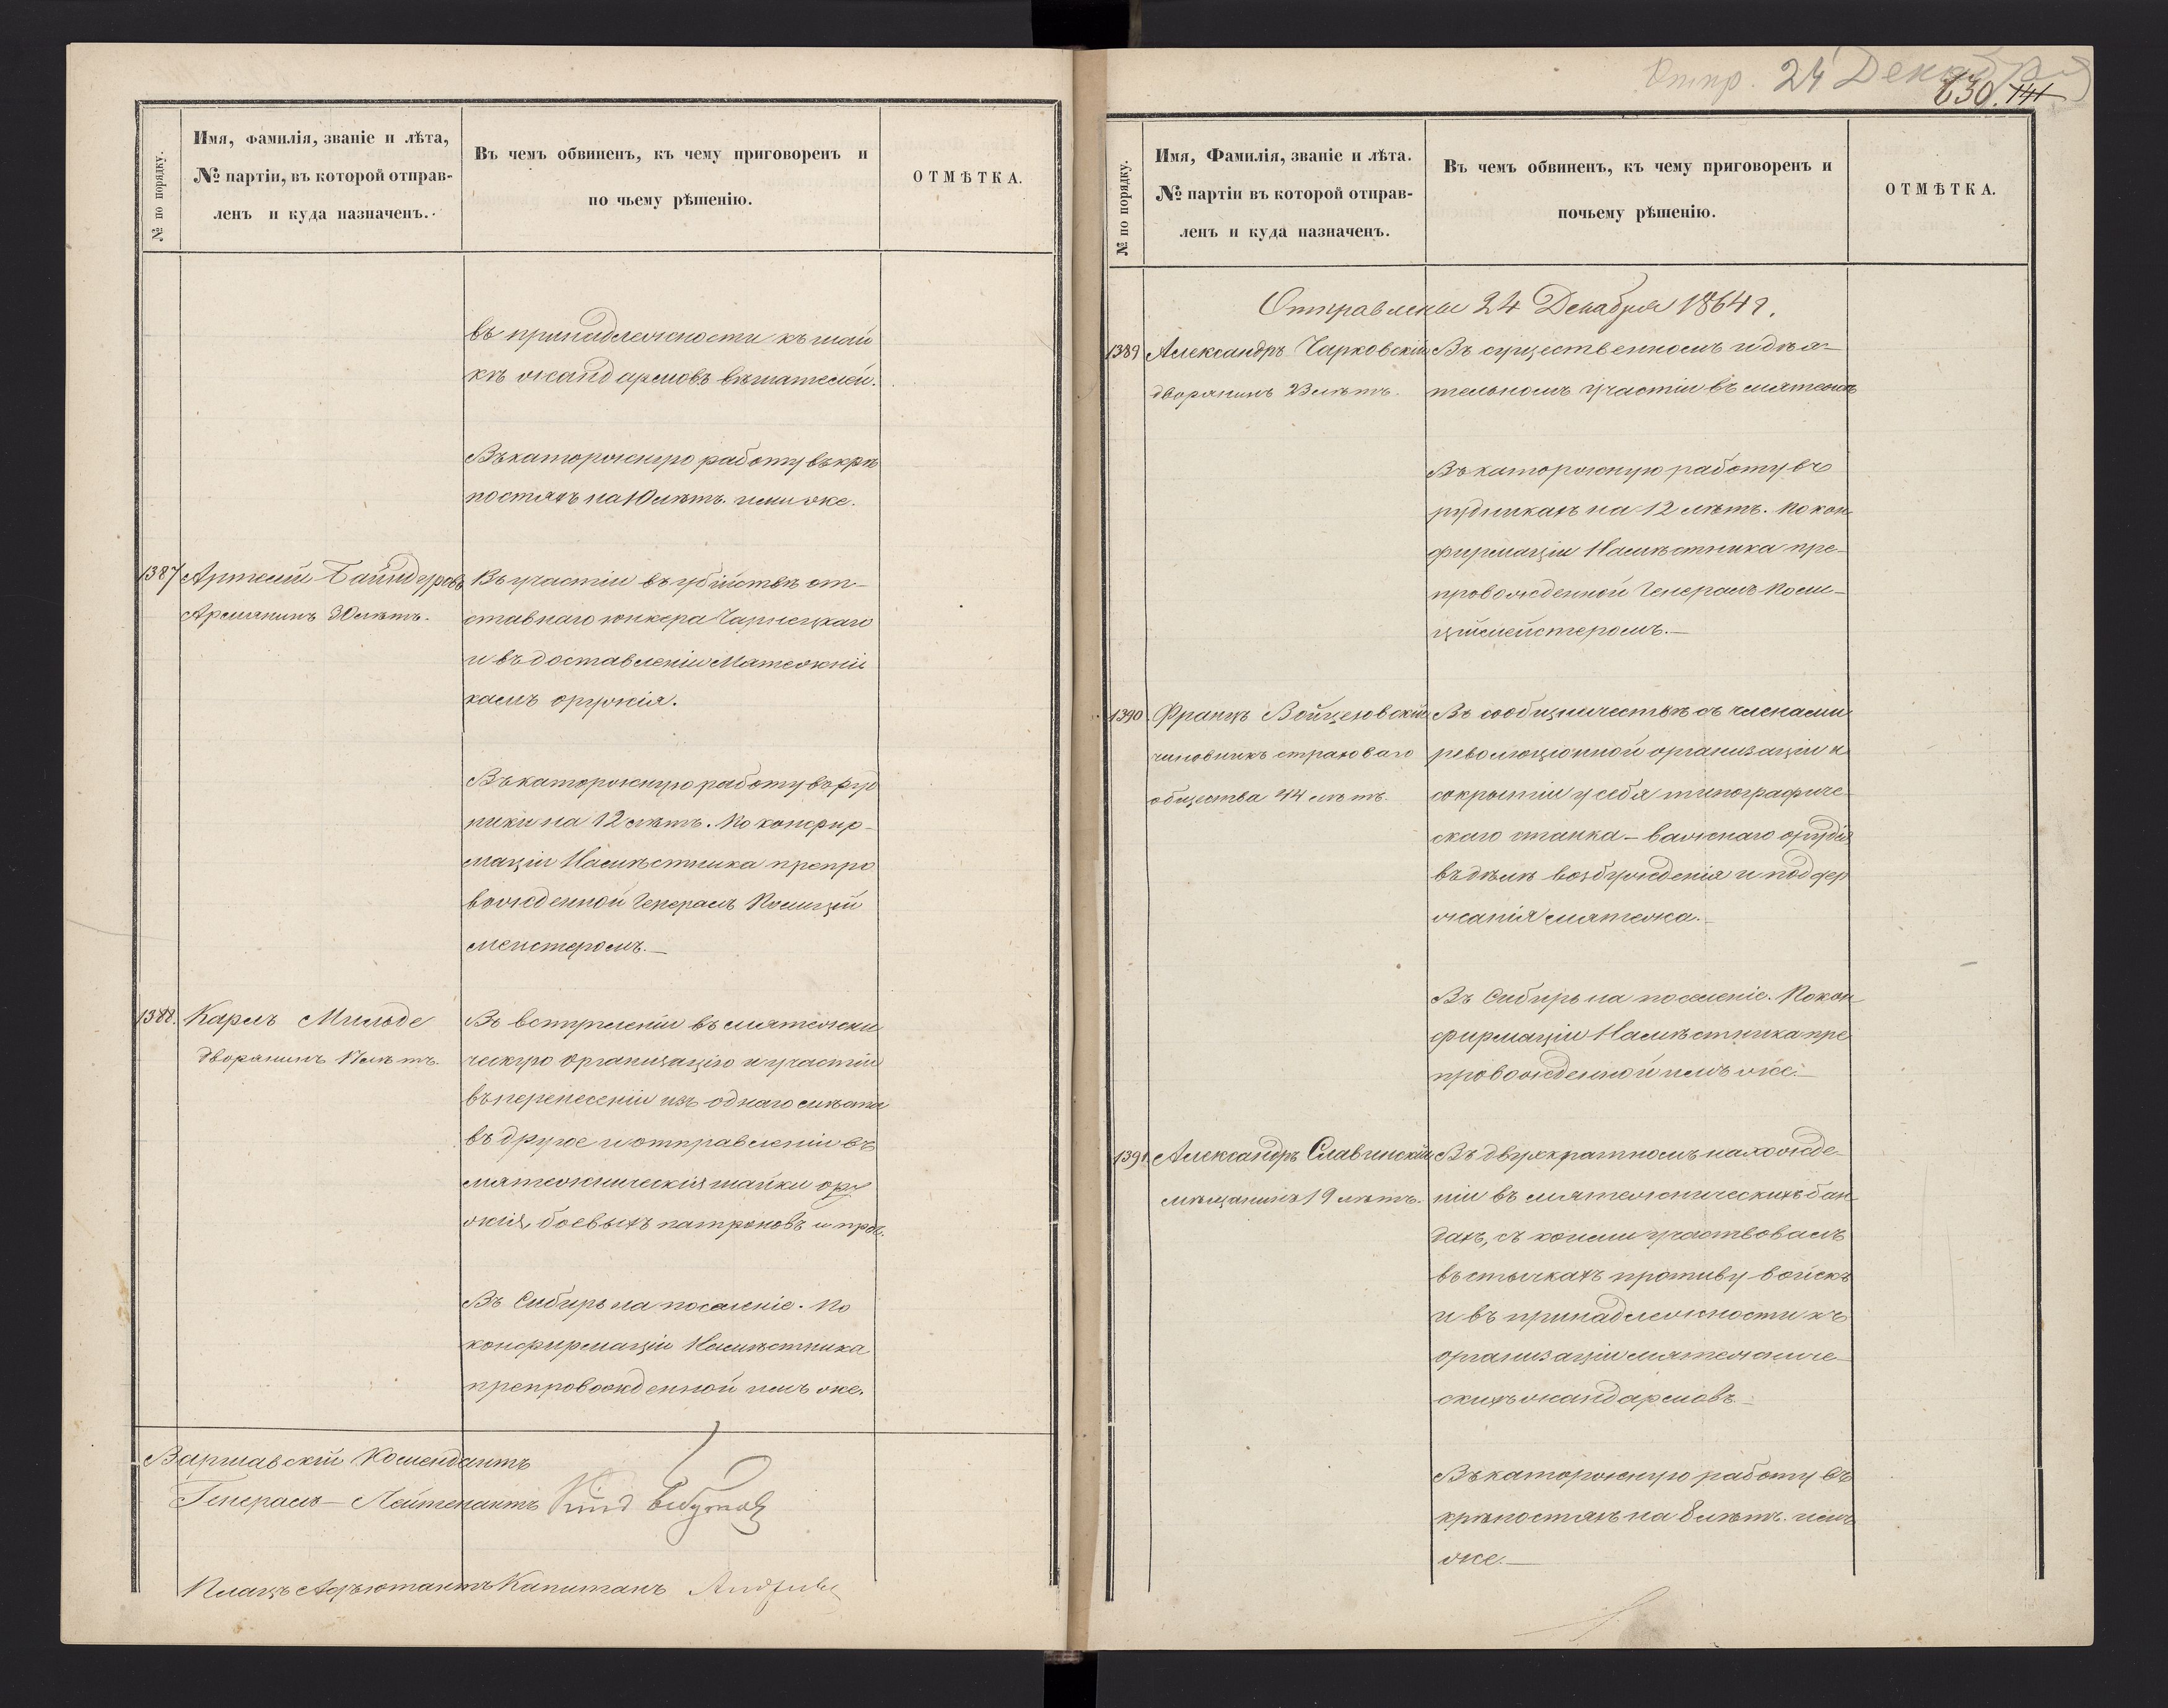 № по порядку.
Имя, фамилія, званіе и лѣта,
№ партіи, въ которой отправ-
ленъ и куда назначенъ.
Въ чемъ обвиненъ, къ чему приговоренъ и
по чьему рѣшенію.
ОТМѢТКА.
въ принадлежности къ шай
кѣ жандармовъ вѣшателей.
Въ каторжную работу въ крѣ
постяхъ на 10 лѣтъ. имъ же.
1387
Артемій Байндуровъ
Армянинъ 30 лѣтъ.
Въ участіи въ убійствѣ от-
ставнаго юнкера Чарнецкаго
и въ доставленіи Мятежни
камъ оружія.
Въ каторжную работу въ руд
ники на 12 лѣтъ. По конфир-
маціи Намѣстника препро
вожденной Генералъ Полицій
мейстеромъ.—
1388.
Карлъ Мильде
дворянинъ 17 лѣтъ.
Въ вступленіи въ мятежни
ческую организацію и участіи
въ перенесеніи изъ однаго мѣста
въ другое и отправленіи въ
мятежническія шайки ору
жія, боевыхъ патроновъ и проч.
Въ Сибирь на поселеніе. По
конфирмаціи Намѣстника
препровожденной имъ же.
Варшавскій Комендантъ
Генералъ-Лейтенантъ
Плацъ Адъютантъ Капитанъ
Отпр. 24 Декабря
130. 141
№ по порядку.
Имя, Фамилія, званіе и лѣта.
№ партіи въ которой отправ-
ленъ и куда назначенъ.
Въ чемъ обвиненъ, къ чему приговоренъ и
почьему рѣшенію.
ОТМѢТКА.
Отправлены 24 Декабря 1864 г.
1389
Александръ Чарковскій
дворянинъ 23 лѣтъ.
Въ существенномъ и дѣя-
тельномъ участіи въ мятежѣ
Въ каторжную работу въ
рудникахъ на 12 лѣтъ. По кон
фирмаціи Намѣстника пре-
провожденной Генералъ Поли-
цімейстеромъ.—
1390.
Францъ Войцеховскій
чиновникъ страховаго
общества 44 лѣтъ.
Въ сообщничествѣ съ членами
революціонной организаціи и
сокрытіи у себя типографиче-
скаго станка - важнаго орудія
въ дѣлѣ возбужденія и поддер
жанія мятежа.—
Въ Сибирь на поселеніе. По кон
фирмаціи Намѣстника пре
провожденной имъ же.—
1391.
Александръ Славинскій
мѣщанинъ 19 лѣтъ.
Въ двухкратномъ нахожде-
ніи въ мятежническихъ бан
дахъ, съ коими участвовалъ
въ стычкахъ противу войскъ
и въ принадлежности къ
организаціи мятежниче-
скихъ жандармовъ.
Въ каторжную работу въ
крѣпостяхъ на 8 лѣтъ. имъ
же.—